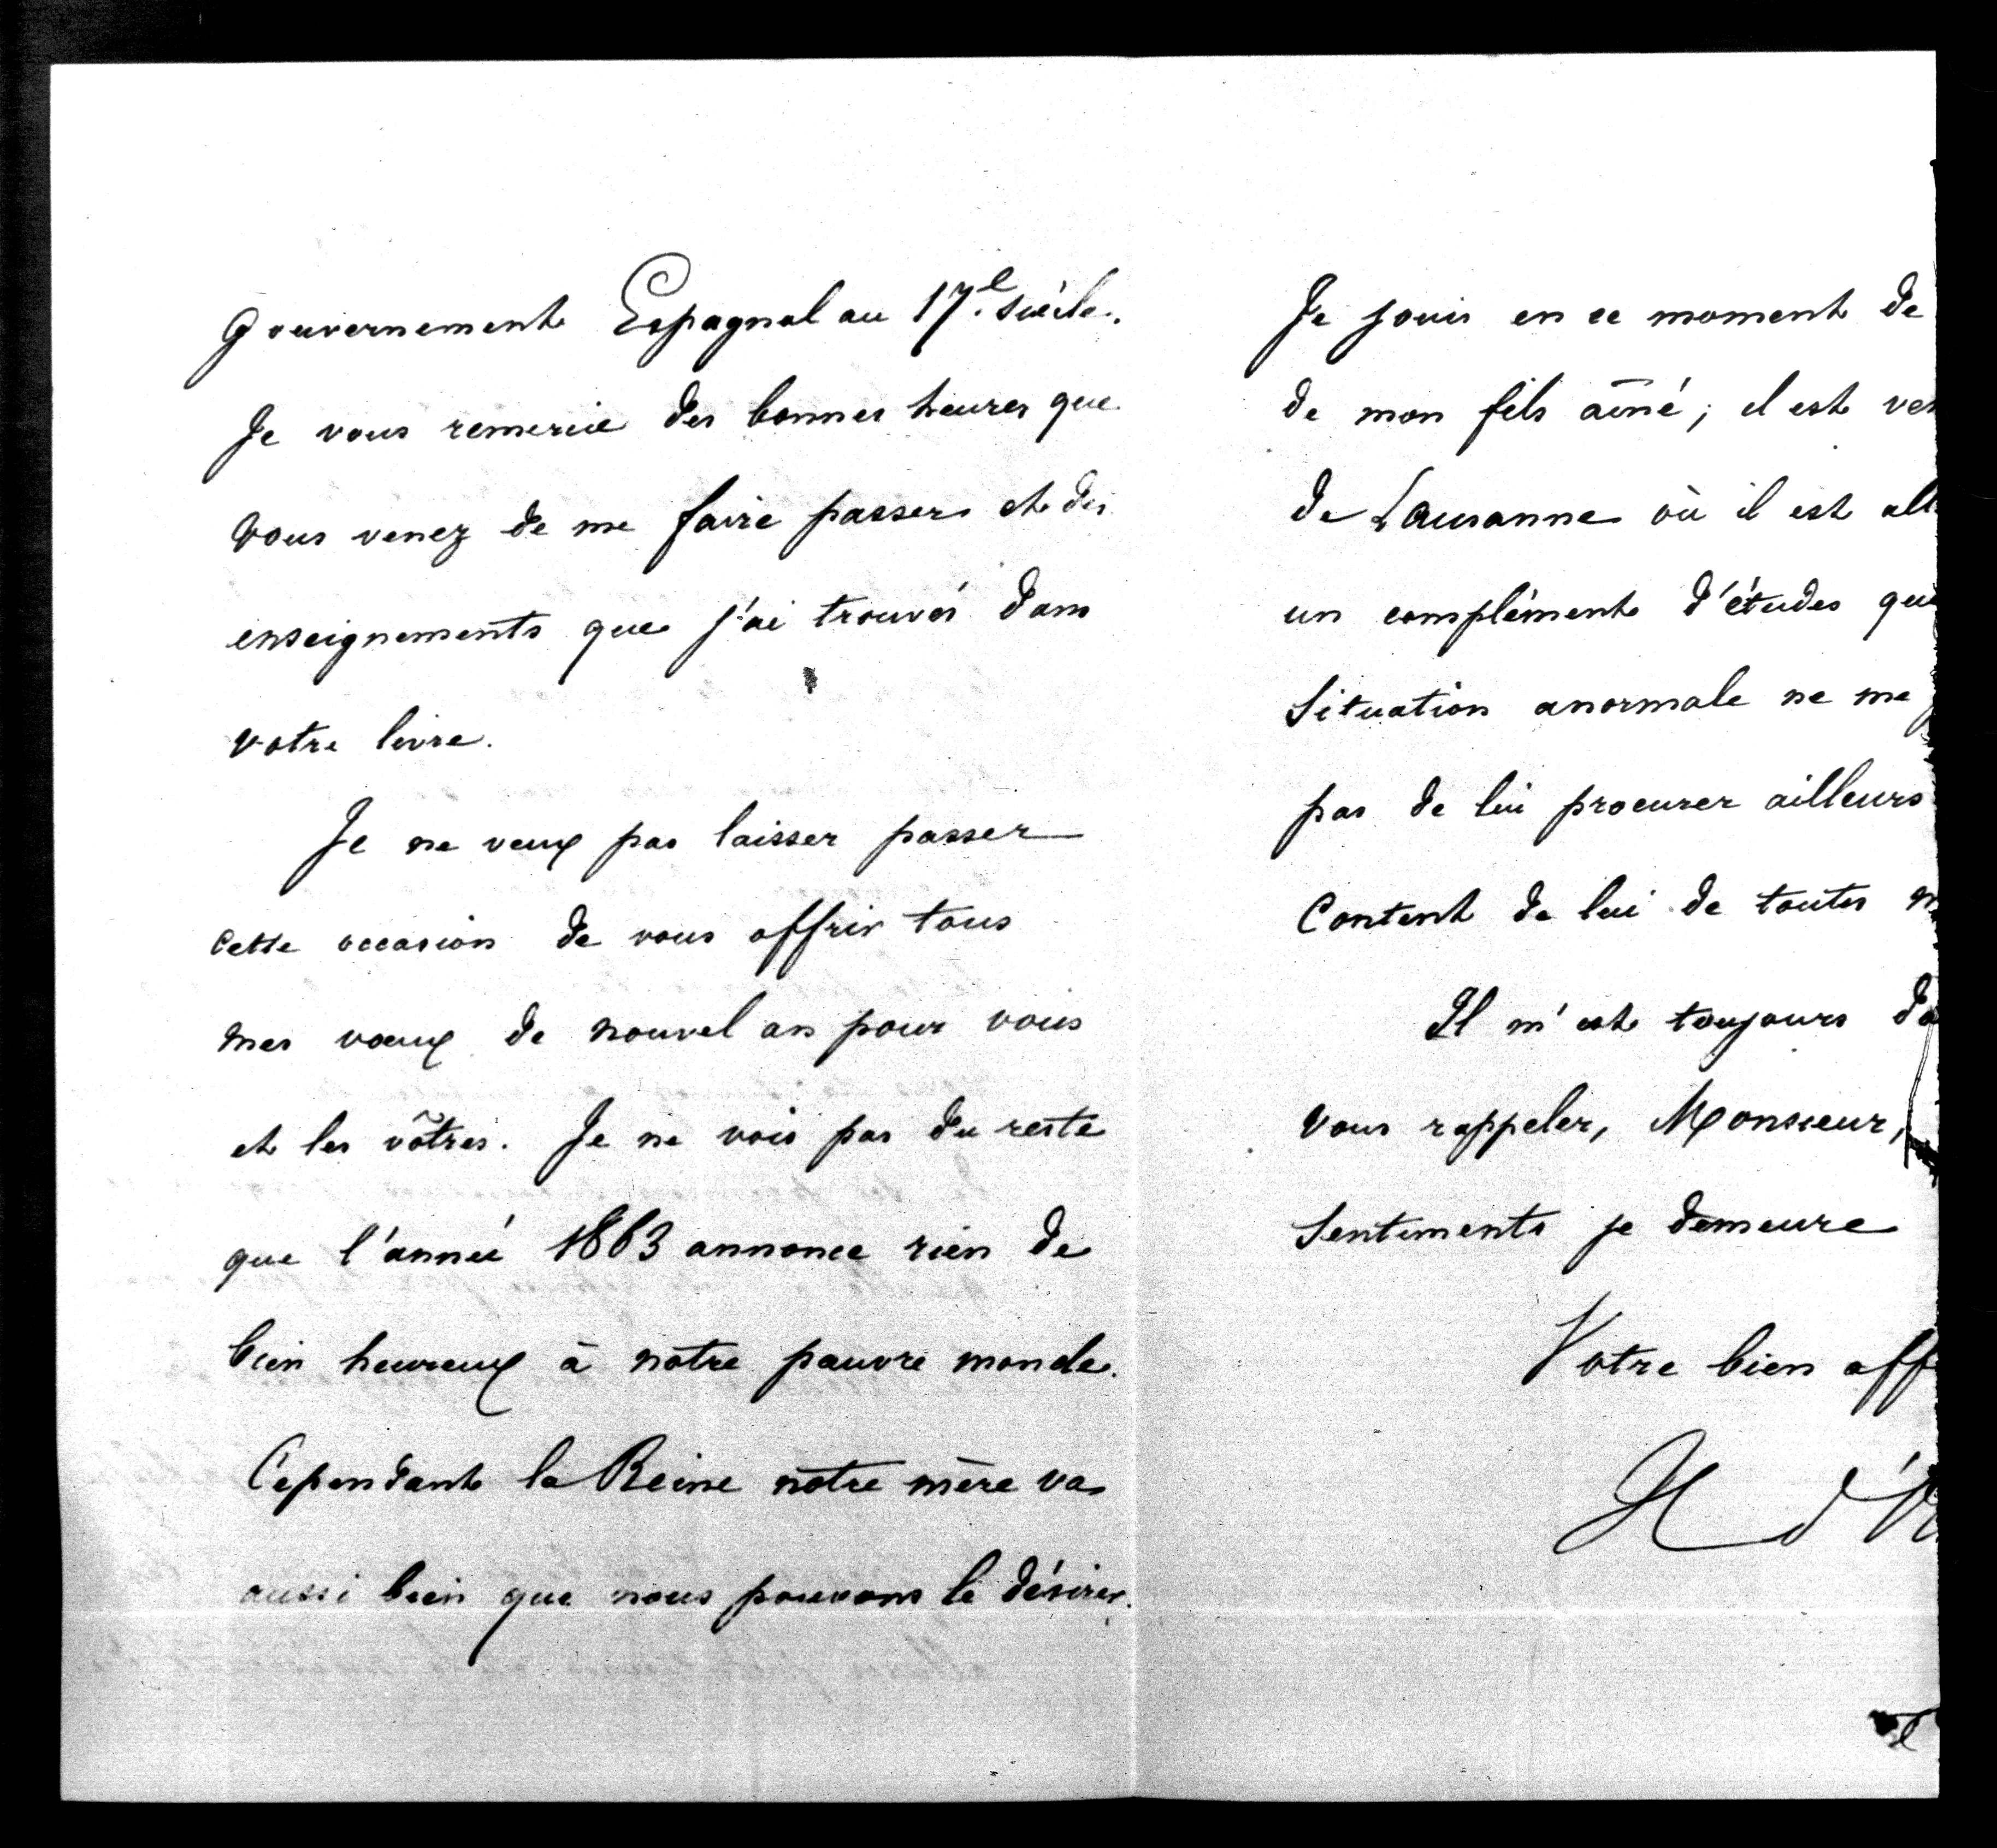 gouvernement Espagnol au 17.e siècle.
Je vous remercie des bonnes heures que
vous venez de me faire passer et des
enseignements que j'ai trouvés dans
votre livre.
Je ne veux pas laisser passer
cette occasion de vous offrir tous
mes vœux de nouvel an pour vous
et les vôtres. Je ne vois pas du reste
que l'année 1863 annonce rien de
bien heureux à notre pauvre monde.
Cependant la Reine notre mère va
aussi bien que nous pouvons le désirer.
Je jouis en ce moment de
de mon fils aîné; il est
de Lausanne où il est
un complément d'études
Situation anormale ne me
pas de lui procurer ailleurs
Content de lui de toutes
Il m'est toujours
vous rappeler, Monsieur,
Sentiments je demeure
Votre bien aff
H d'